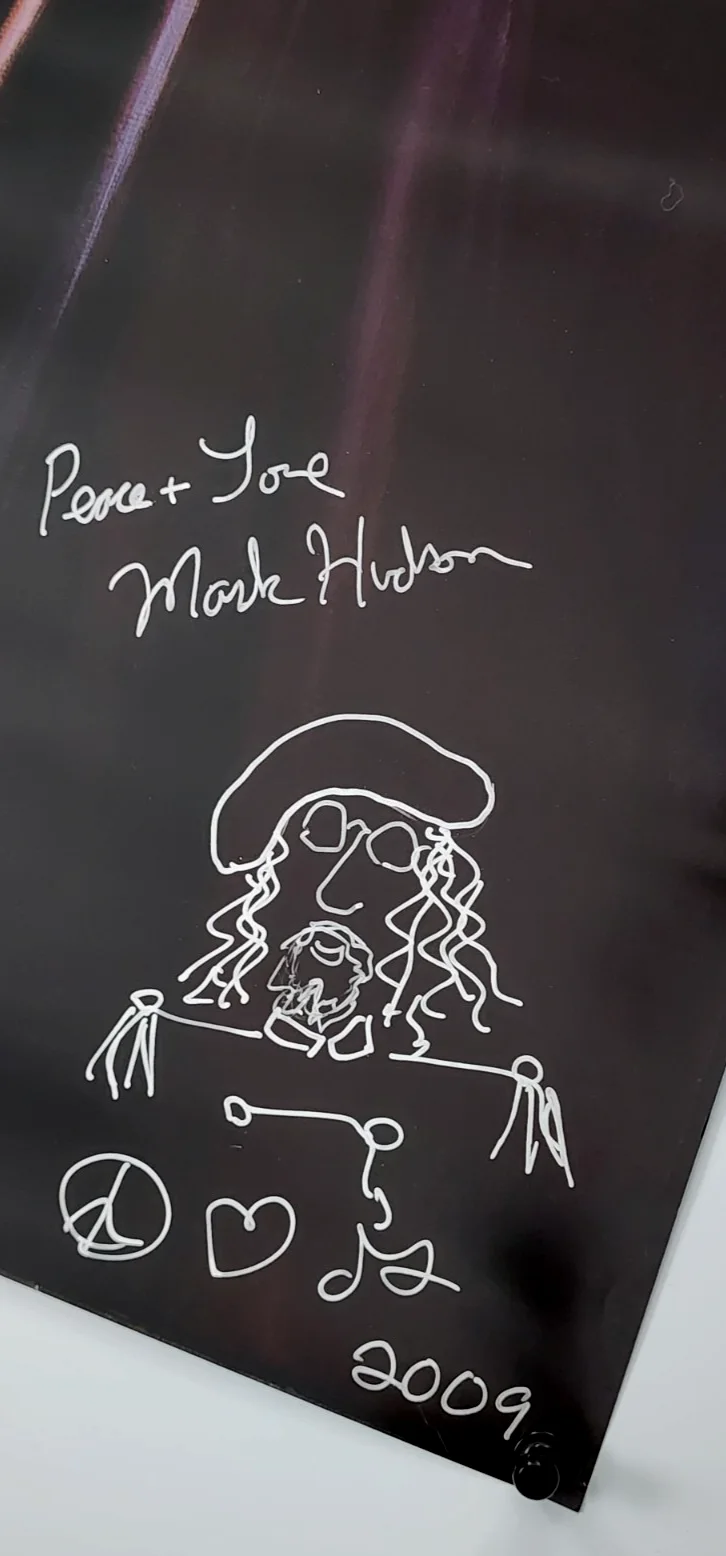 Peace + Love
Mark Hudson
2009